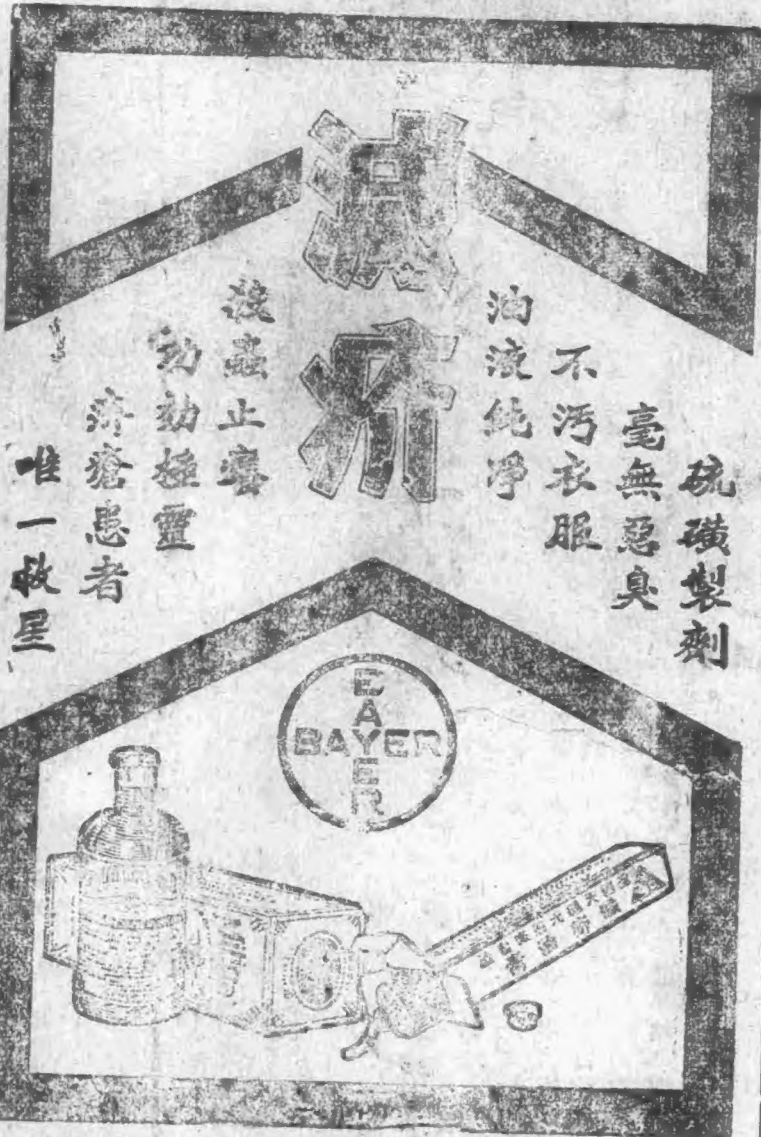 滅疥
硫磺製劑
毫無惡臭
不污衣服
油液純淨
殺蟲止癢
功効極靈
疥瘡患者
唯一救星
BAYER
BAYER